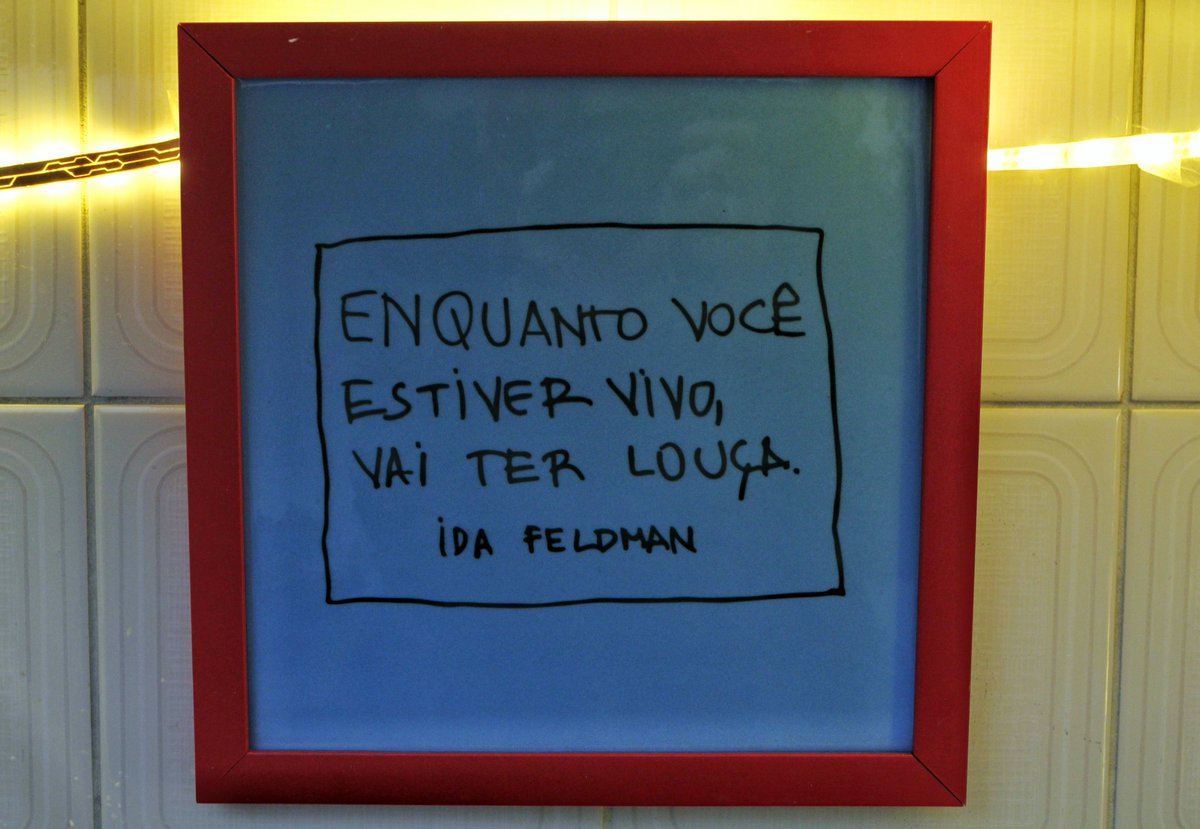 ENQUANTO VOCÊ
ESTIVER VIVO,
VAI TER LOUÇA.
IDA FELDMAN